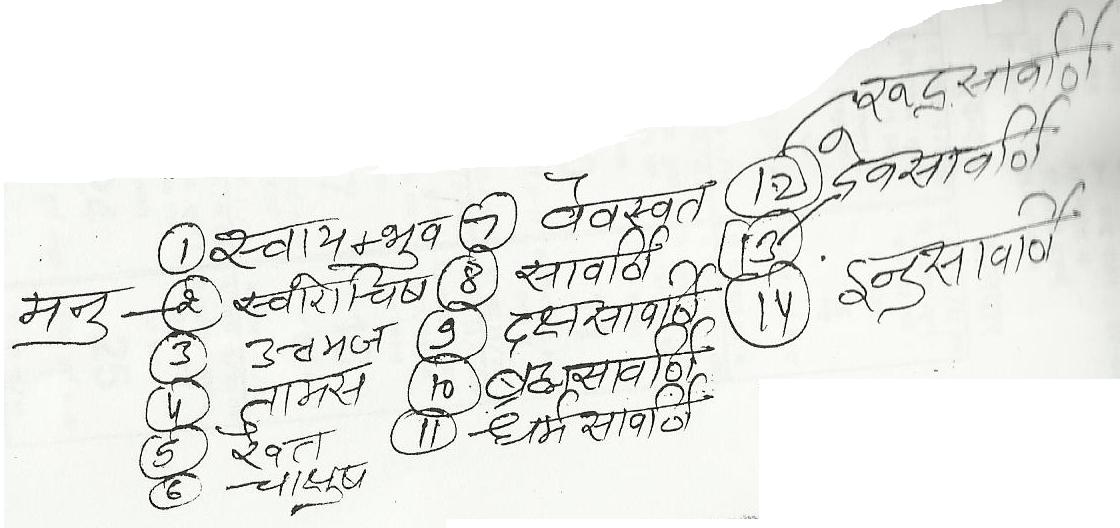 मनु - ① स्वायम्भुव
② स्वारोचिष
③ उत्तमज
④ तामस
⑤ रैवत
⑥ चाक्षुष
⑦ वैवस्वत
⑧ सावर्णि
⑨ दक्षसावर्णि
⑩ ब्रह्मसावर्णि
⑪ धर्मसावर्णि
⑫ रूद्रसावर्णि
⑬ देवसावर्णि
⑭ इन्द्रसावर्णि